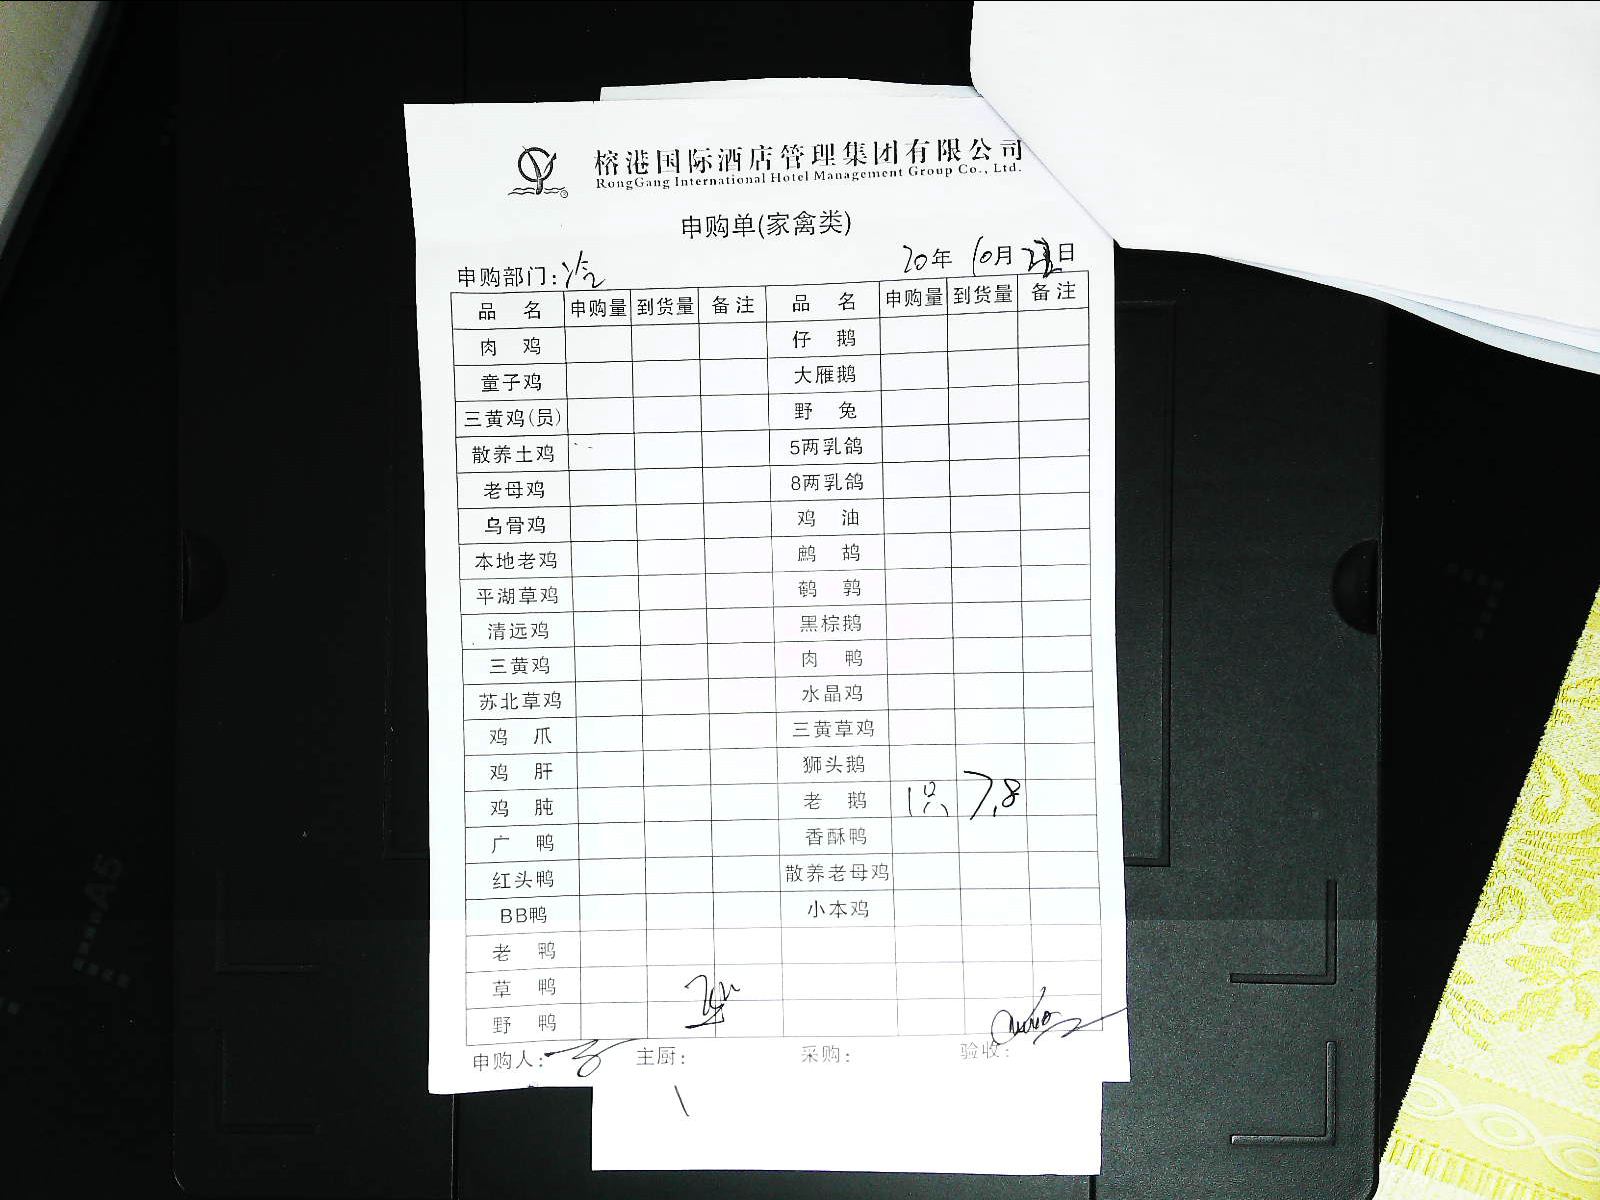 榕港国际酒店管理集团有限公司
RongGang International Hotel Management Group Co., Ltd.
申购单(家禽类)
申购部门:冷 20年 10月 日
品 名 申购量 到货量 备注 品 名 申购量 到货量 备注
肉 鸡 仔 鹅
童子鸡 大雁鹅
三黄鸡(员) 野 兔
散养土鸡 5两乳鸽
老母鸡 8两乳鸽
乌骨鸡 鸡 油
本地老鸡 鹧 鸪
平湖草鸡 鹌 鹑
清远鸡 黑棕鹅
三黄鸡 肉 鸭
苏北草鸡 水晶鸡
鸡 爪 三黄草鸡
鸡 肝 狮头鹅
鸡 肫 老 鹅 1只 7.8
广 鸭 香酥鸭
红头鸭 散养老母鸡
BB鸭 小本鸡
老 鸭
草 鸭
野 鸭
申购人: 主厨: 采购: 验收:
A5